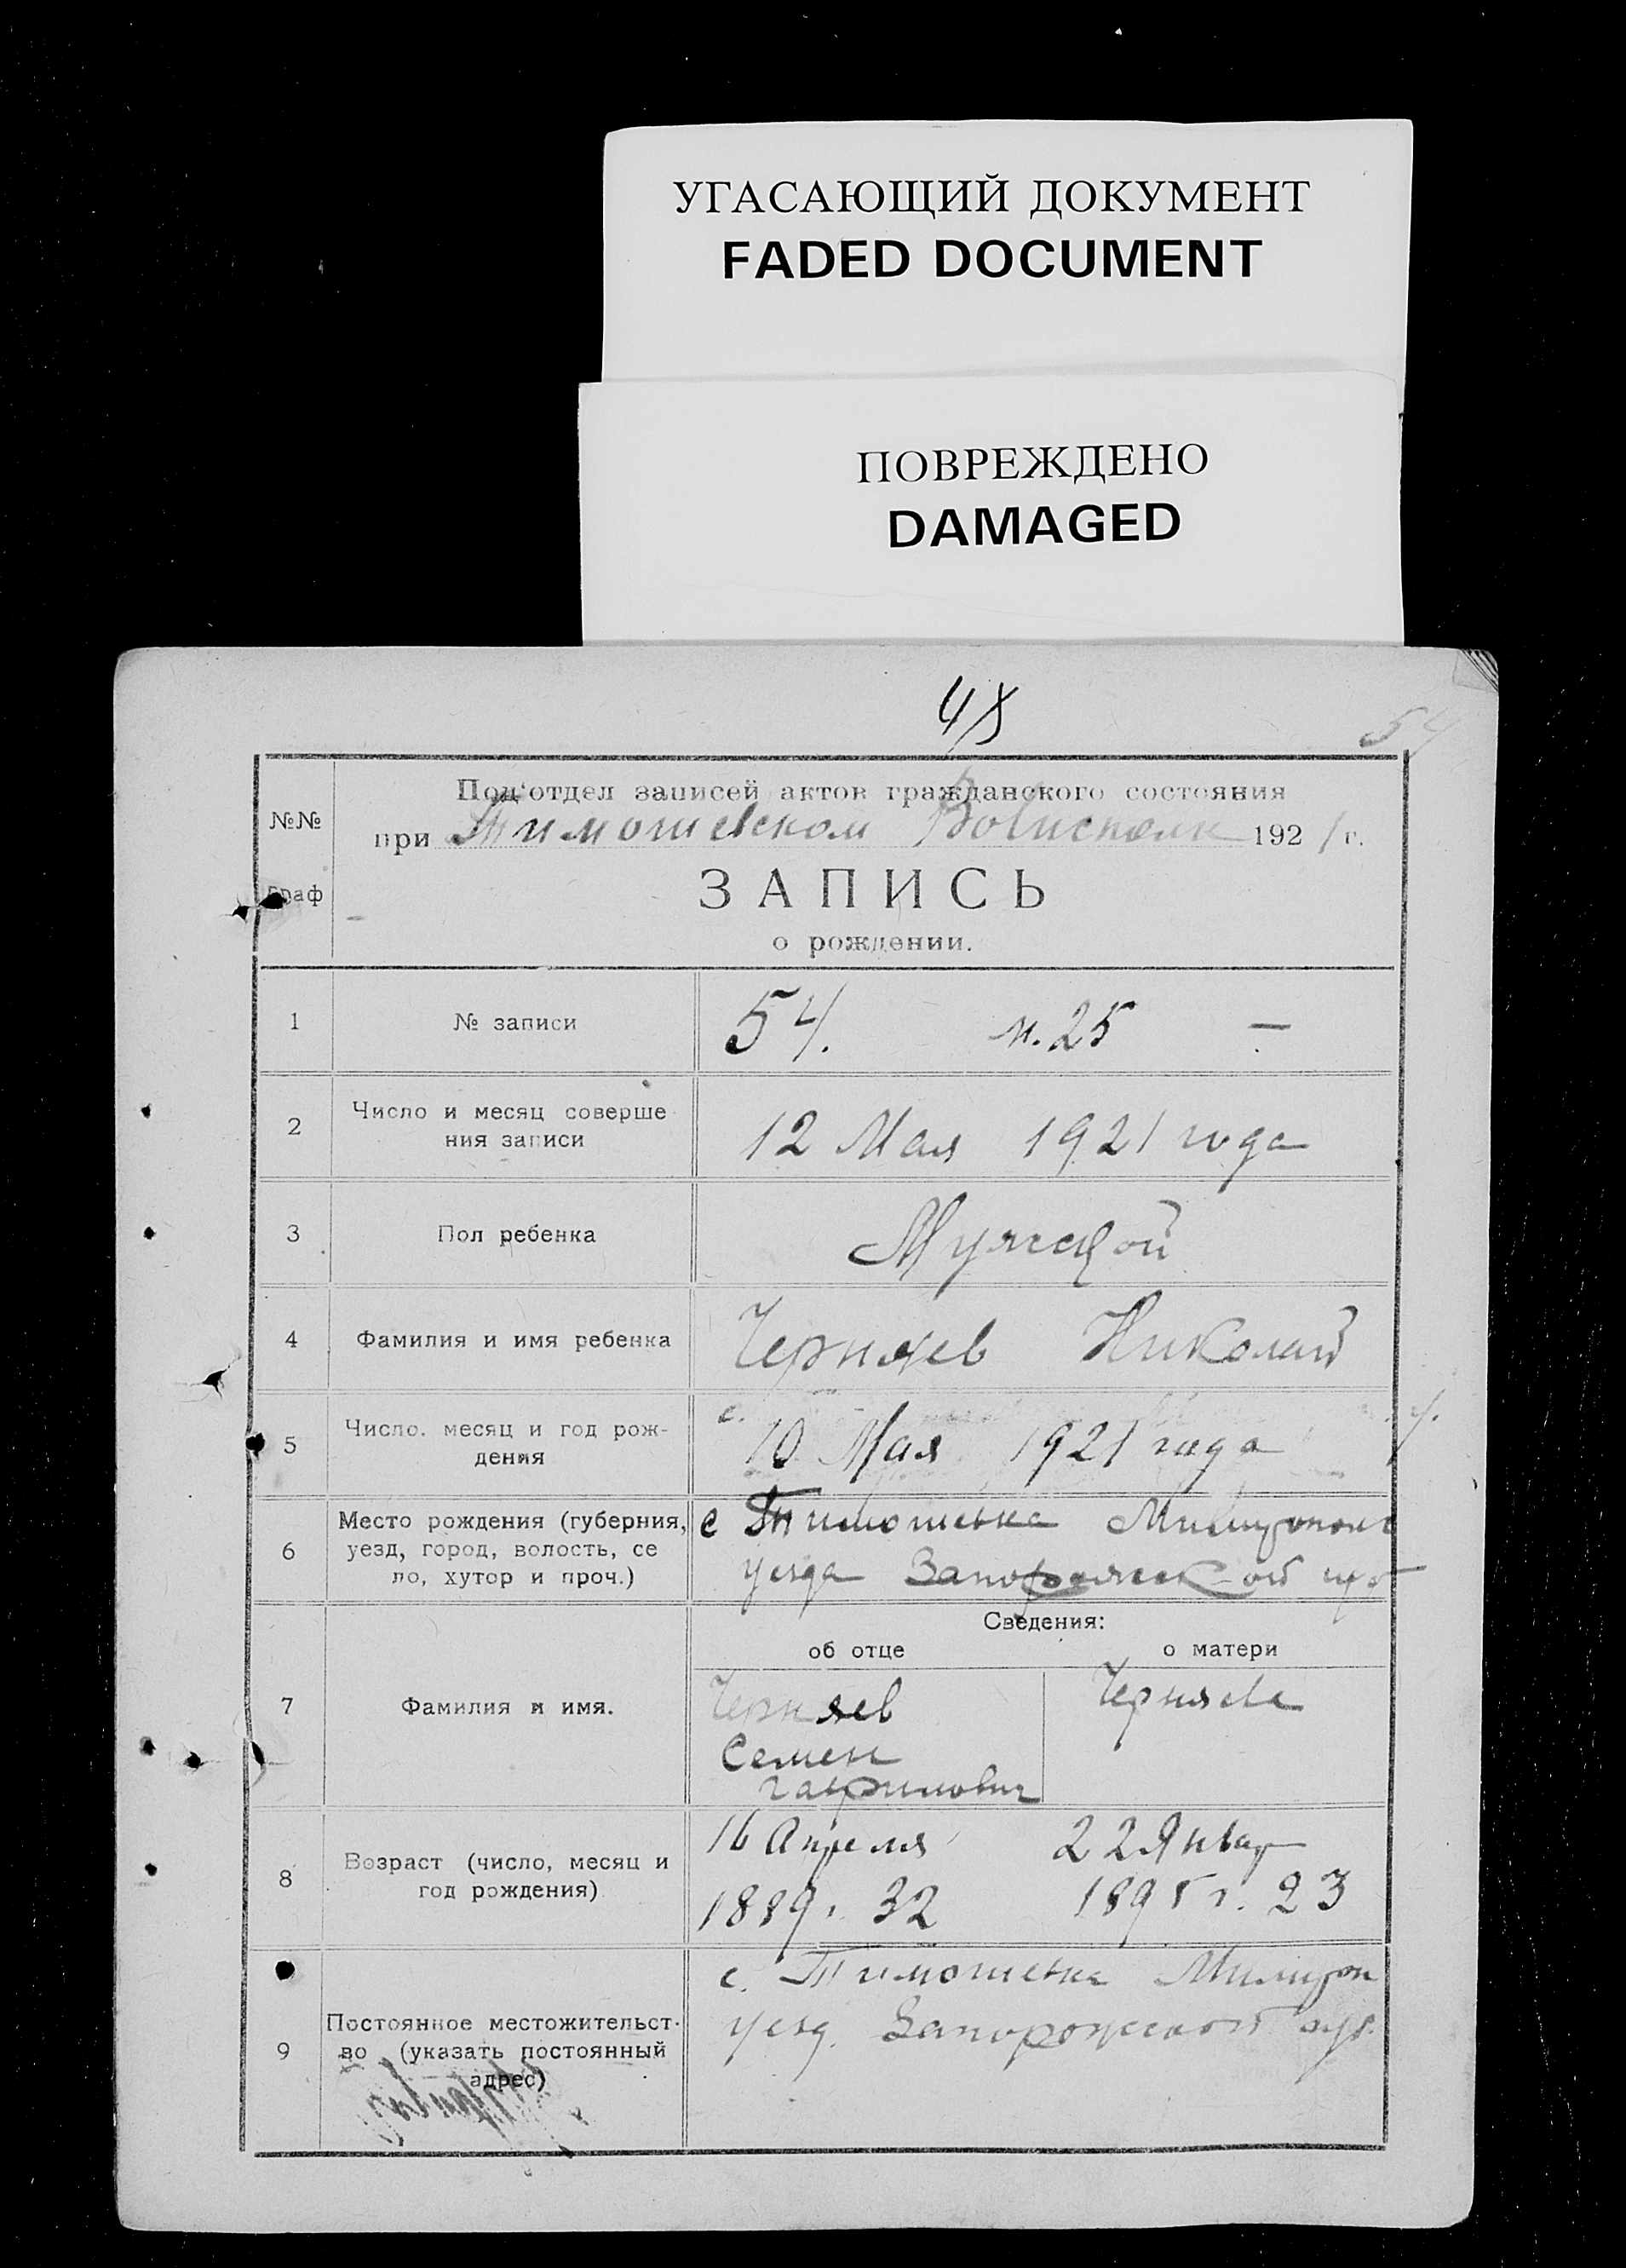 УГАСАЮЩИЙ ДОКУМЕНТ
FADED DOCUMENT
ПОВРЕЖДЕНО
DAMAGED
48
54
№№
граф
Под'отдел записей актов гражданского состояния
при Тимошевском Волисполк 1921 г.
ЗАПИСЬ
о рождении.
1 № записи 54. м. 25 —
2 Число и месяц соверше
ния записи
12 Мая 1921 года
3 Пол ребенка Мужской
4 Фамилия и имя ребенка Черняев Николай
5 Число. месяц и год рож-
дения
с.
10 Мая 1921 года
6 Место рождения (губерния,
уезд, город, волость, се
ло, хутор и проч.)
с Тимошевка
уезда Запорожской губ
Сведения:
об отце о матери
7 Фамилия и имя.
Черняев
Семен
Черняева
8 Возраст (число, месяц и
год рождения)
16 Апреля
1889г. 32
22 Январ
1895 г. 23
9 Постоянное местожительст-
во (указать постоянный
адрес)
с. Тимошевка
уезд. Запорожской губ.